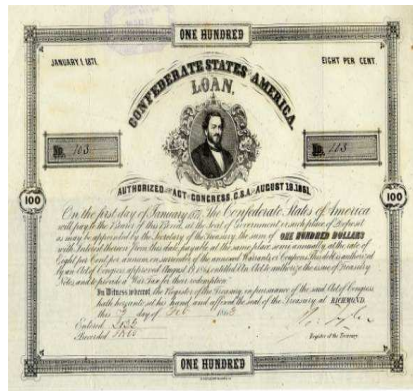 ONE HUNDRED
JANUARY 1. 1871.
EIGHT PER CENT.
CONFEDERATE STATES AMERICA.
LOAN,
No. 103
No. 103
AUTHORIZED BY ACT OF CONGRESS, C.S.A. AUGUST 19.1861.
100
100
On the first day of January 1871, The Confederate States of America
will pay to the Bearer of this Bond, at the seat of Government or such place of Deposit
as may be appointed by the Secretary of the Treasury the sum of ONE HUNDRED DOLLARS
with Interest thereon from this date, payable at the same place semi annually, at the rate of
Eight per Cent per annum on surrender of the annexed Warrants or Coupons. This debt is authorized
by an Act of Congress approved August 19, 1861, entitled An Act to authorize the issue of Treasury
Notes, and to provide a War Tax for their redemption.
In Witness whereof, the Register of the Treasury, in pursuance of the said Act of Congress
hath hereunto set his hand, and affixed the seal of the Treasury at RICHMOND,
this day of Feb 186
Entered
Recorded
Register of the Treasury
ONE HUNDRED